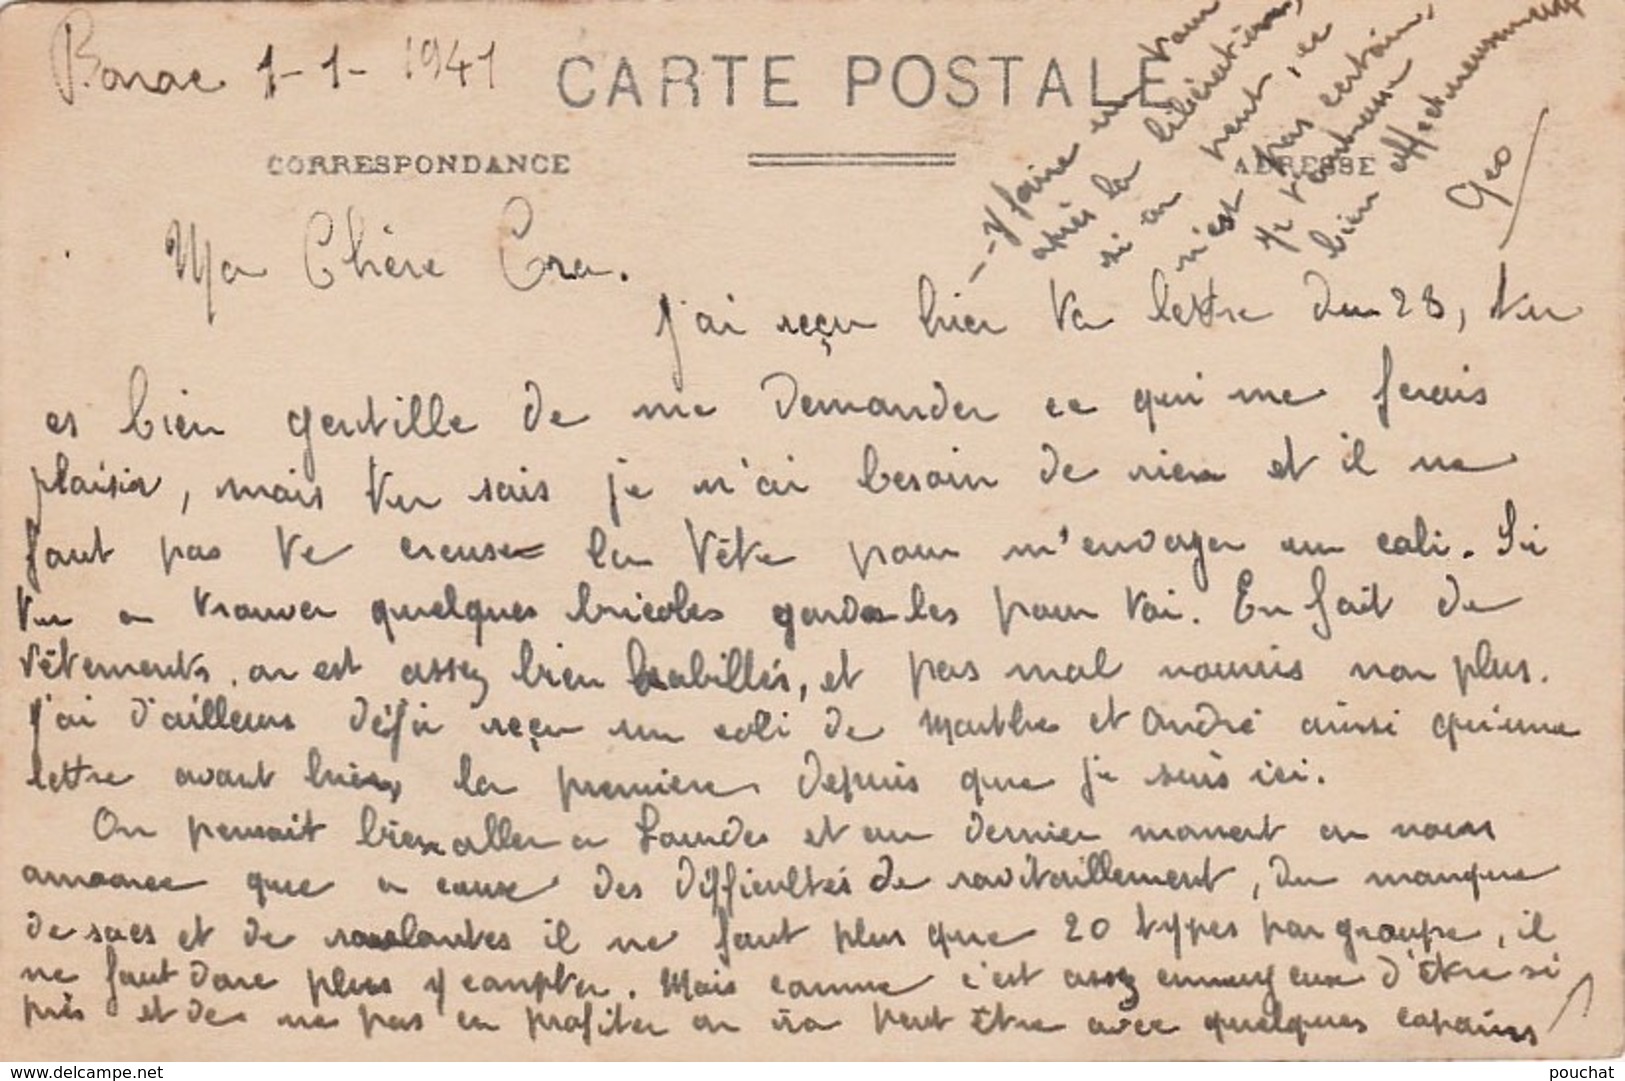 Bonac 1-1-1941
CARTE POSTALE
CORRESPONDANCE
ADRESSE
Ma Chère
J'ai reçu hier ta lettre du 28, tu
es bien gentille de me demander ce qui me ferais
plaisir, mais tu sais je n'ai besoin de rien et il ne
faut pas te creuser la tête pour m'envoyer un coli. Si
tu a trouver quelques bricoles garde les pour toi. En fait de
vêtements. on est assez bien habillés, et pas mal nourris non plus.
J'ai d'ailleurs déjà reçu un coli de Marthe et André ainsi qu'une
lettre avant hier, la première depuis que je suis ici.
On pensait bien aller a Lourdes et au dernier moment on nous
annonce que a cause des difficultés de ravitaillement, du manque
de sacs et de roulantes il ne faut plus que 20 types par groupe, il
ne faut donc plus y compter. Mais comme c'est assez ennuyeux d'être si
près et de ne pas en profiter on ira peut être avec quelques copains
-- y faire un tour
après la libération,
si on peut, ce
n'est pas certain,
Je t'embrasse
bien affectueusement
Geo
www.delcampe.net
pouchat